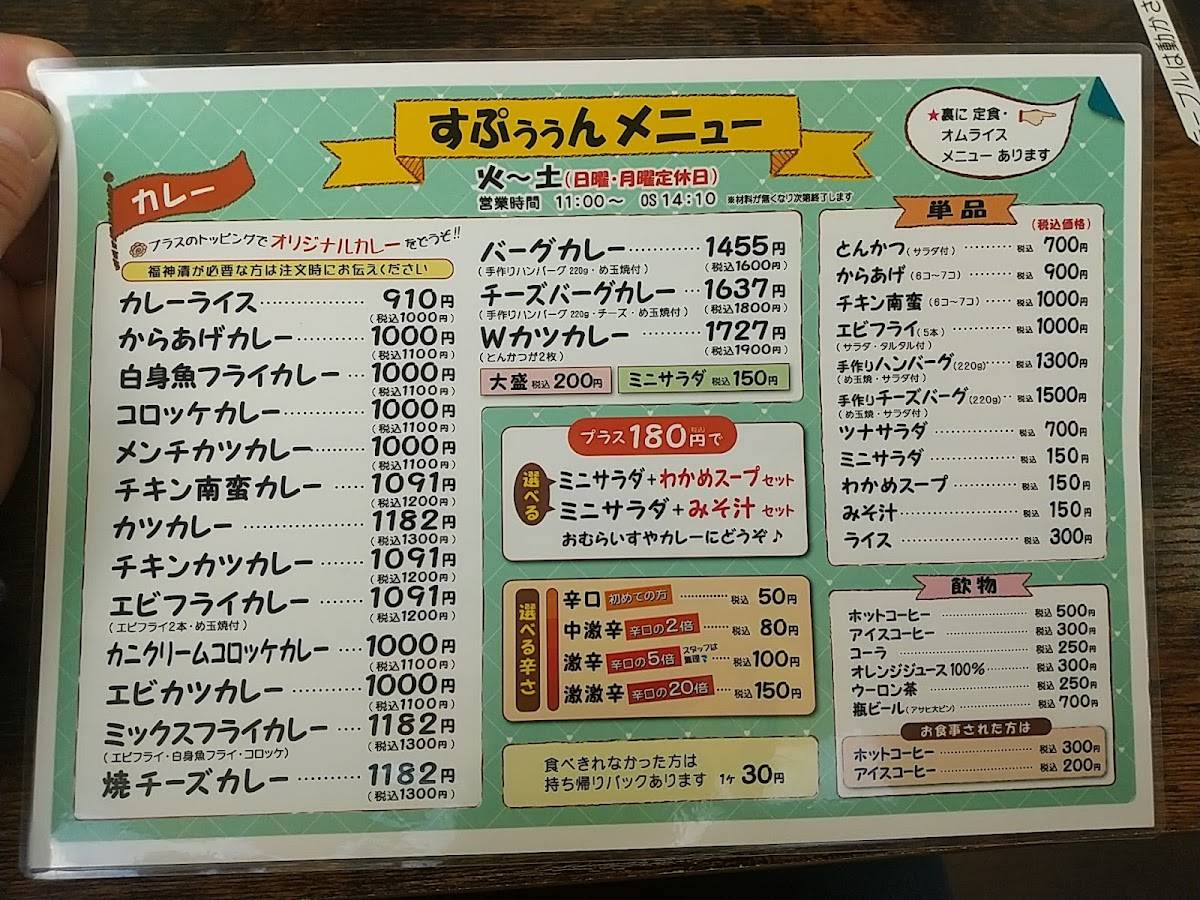 フルは動かさ
すぷぅぅんメニュー
火～土(日曜・月曜定休日)
営業時間 11:00～ OS 14:10 ※材料が無くなり次第終了します
★裏に 定食・
オムライス
メニュー あります
カレー
プラスのトッピングでオリジナルカレーをどうぞ!!
福神漬が必要な方は注文時にお伝えください
カレーライス 910円
(税込1000円)
からあげカレー 1000円
(税込1100円)
白身魚フライカレー 1000円
(税込1100円)
コロッケカレー 1000円
(税込1100円)
メンチカツカレー 1000円
(税込1100円)
チキン南蛮カレー 1091円
(税込1200円)
カツカレー 1182円
(税込1300円)
チキンカツカレー 1091円
(税込1200円)
エビフライカレー 1091円
(エビフライ2本・め玉焼付) (税込1200円)
カニクリームコロッケカレー 1000円
(税込1100円)
エビカツカレー 1000円
(税込1100円)
ミックスフライカレー 1182円
(エビフライ・白身魚フライ・コロッケ) (税込1300円)
焼チーズカレー 1182円
(税込1300円)
バーグカレー 1455円
(手作りハンバーグ220g・め玉焼付) (税込1600円)
チーズバーグカレー 1637円
(手作りハンバーグ220g・チーズ・め玉焼付) (税込1800円)
Wカツカレー 1727円
(とんかつが2枚) (税込1900円)
大盛 税込200円 ミニサラダ 税込150円
プラス180円(税込)で
選べる
ミニサラダ+わかめスープセット
ミニサラダ+みそ汁セット
おむらいすやカレーにどうぞ♪
選べる辛さ
辛口 初めての方 税込 50円
中激辛 辛口の2倍 税込 80円
激辛 辛口の5倍 スタッフは無理 税込100円
激激辛 辛口の20倍 税込150円
食べきれなかった方は
持ち帰りパックあります 1ケ 30円
単品
(税込価格)
とんかつ(サラダ付) 税込 700円
からあげ(6コ～7コ) 税込 900円
チキン南蛮(6コ～7コ) 税込 1000円
エビフライ(5本) 税込 1000円
(サラダ・タルタル付)
手作りハンバーグ(220g) 税込 1300円
(め玉焼・サラダ付)
手作りチーズバーグ(220g) 税込 1500円
(め玉焼・サラダ付)
ツナサラダ 税込 700円
ミニサラダ 税込 150円
わかめスープ 税込 150円
みそ汁 税込 150円
ライス 税込 300円
飲物
ホットコーヒー 税込 500円
アイスコーヒー 税込 300円
コーラ 税込 250円
オレンジジュース100% 税込 300円
ウーロン茶 税込 250円
瓶ビール(アサヒ大ビン) 税込 700円
お食事された方は
ホットコーヒー 税込 300円
アイスコーヒー 税込 200円